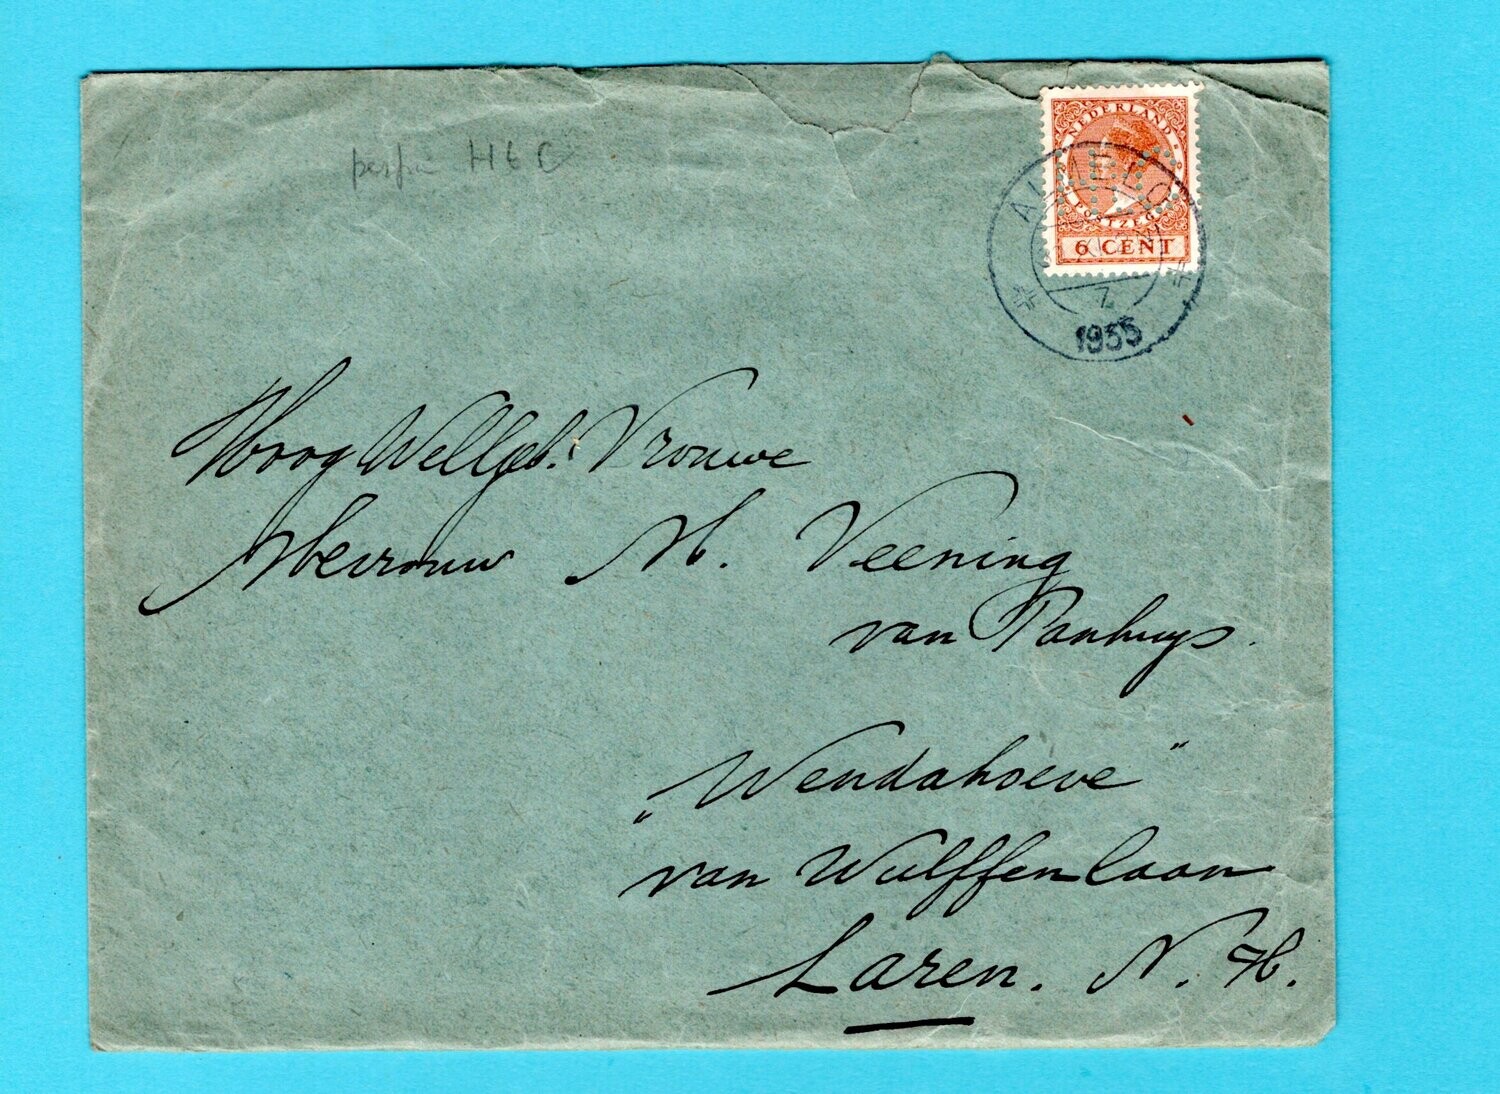 perfin H b C
NEDERLAND
POSTZEGEL
6 CENT
ALMELO
1935
HoogWelgeb. Vrouwe
Mevrouw M. Veening
van Panhuys.
„Wendahoeve"
van Wulffenlaan
Laren. N. H.